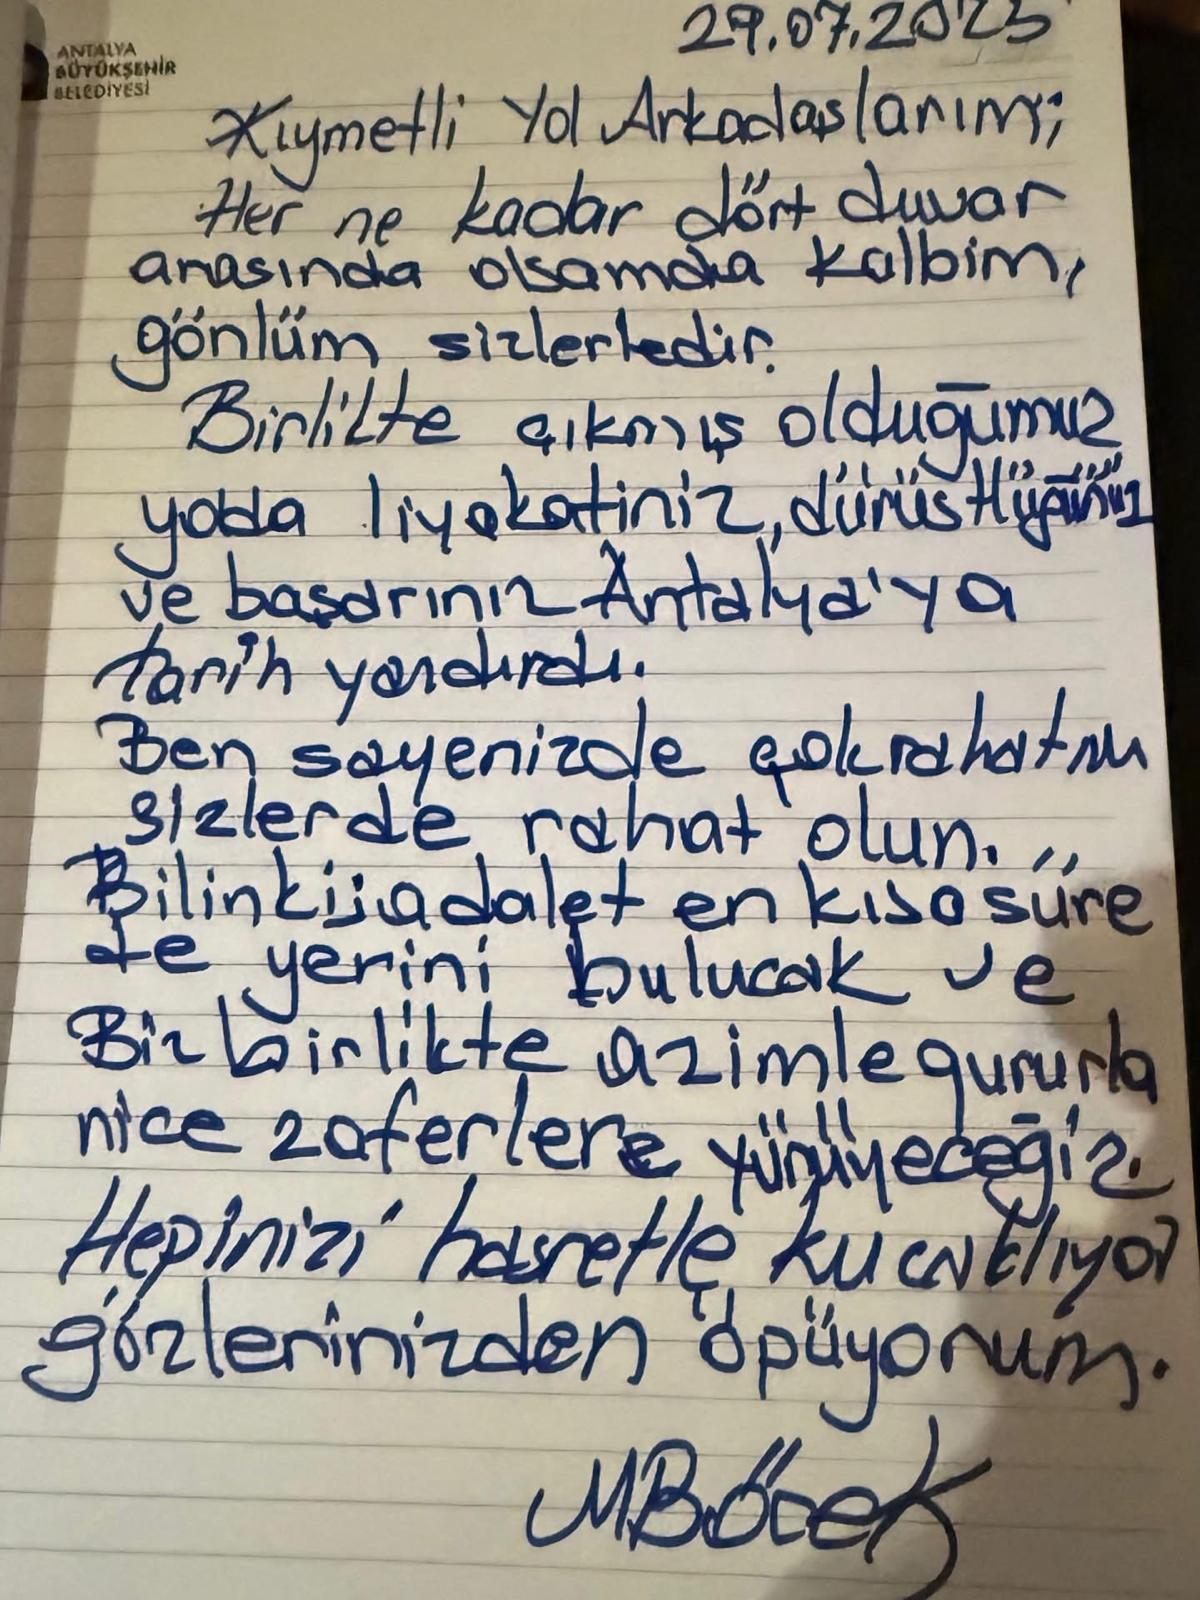 ANTALYA
BÜYÜKŞEHİR
BELEDİYESİ
29.07.2025
Kıymetli Yol Arkadaşlarım;
Her ne kadar dört duvar
arasında olsamda kalbim,
gönlüm sizlerledir.
Birlikte çıkmış olduğumuz
yolda liyakatiniz, dürüstlüğünüz
ve başarınız Antalya'ya
tarih yazdırdı.
Ben sayenizde çok rahatım
sizlerde rahat olun.
Bilinki; adalet en kısa süre
de yerini bulucak ve
Biz birlikte azimle gururla
nice zaferlere yürüyeceğiz.
Hepinizi hasretle kucaklıyor
gözlerinizden öpüyorum.
MBöcek